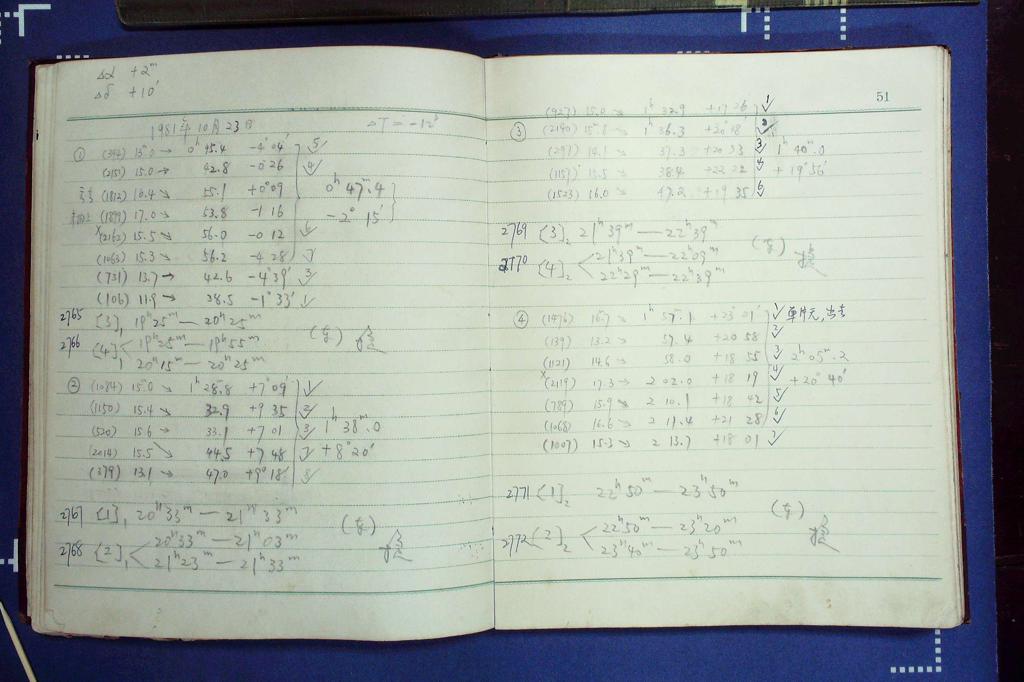 Δα +2ᵐ
Δδ +10′
1981年10月23日 ΔT = -12ˢ
① (394) 15.0 → 0ʰ 45.4 -4°04′ 5
(2151) 15.0 → 42.8 -0°26 4
(1812) 16.4 → 55.1 +0°09 0ʰ 47ᵐ.4
(1899) 17.0 → 53.8 -1 16 -2° 15′
×(2162) 15.5 ↘ 56.0 -0 12
(1063) 15.3 ↘ 56.2 -4 28
(731) 13.7 → 42.6 -4°39′ 3
(106) 11.9 → 38.5 -1°33′ 1
2765 [3]₁ 19ʰ25ᵐ — 20ʰ25ᵐ
2766 [4]₁ 19ʰ25ᵐ — 19ʰ55ᵐ
20ʰ15ᵐ — 20ʰ25ᵐ
② (1084) 15.0 → 1ʰ 28.8 +7°09′ 1
(1150) 15.4 → 32.9 +9 35 2
(520) 15.6 → 33.1 +7 01 3 1ʰ 38ᵐ.0
(2014) 15.5 ↘ 44.5 +7 48 +8°20′
(379) 13.1 → 47.0 +9°18′ 5
2767 [1]₁ 20ʰ33ᵐ — 21ʰ33ᵐ
2768 [2]₁ 20ʰ33ᵐ — 21ʰ03ᵐ
21ʰ23ᵐ — 21ʰ33ᵐ
51
(927) 15.0 → 1ʰ 32.9 +17 26 1
③ (2190) 15.8 → 36.3 +20 18 2
(291) 14.1 → 37.3 +20 33 3 1ʰ 40ᵐ.0
(1157) 15.5 → 38.4 +22 22 4 +19°56′
(1523) 16.0 → 47.2 +19 35 6
2769 [3]₂ 21ʰ39ᵐ — 22ʰ39ᵐ
2770 [4]₂ 21ʰ39ᵐ — 22ʰ09ᵐ
22ʰ29ᵐ — 22ʰ39ᵐ
④ (1476) 16.7 → 1ʰ 57.1 +23°01′ 1 单片无,出去
(139) 13.2 → 57.4 +20 58 2
(1121) 14.6 → 58.0 +18 55 3 2ʰ05ᵐ.2
×(2119) 17.3 → 2 02.0 +18 19 4 +20°40′
(789) 15.9 ↘ 2 10.1 +18 42 5
(1068) 16.6 ↘ 2 11.4 +21 28 6
(1007) 15.3 ↘ 2 13.7 +18 01 7
2771 [1]₂ 22ʰ50ᵐ — 23ʰ50ᵐ
2772 [2]₂ 22ʰ50ᵐ — 23ʰ20ᵐ
23ʰ40ᵐ — 23ʰ50ᵐ